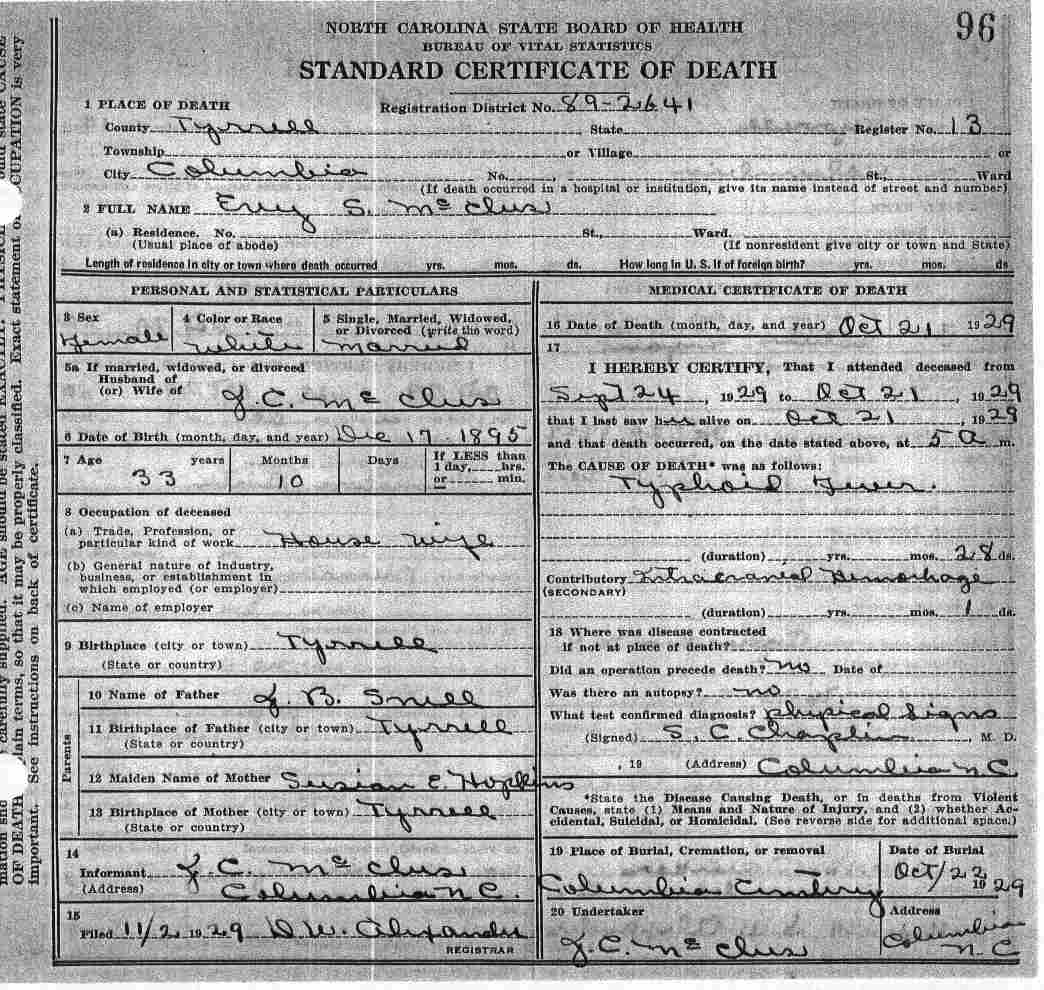 96
NORTH CAROLINA STATE BOARD OF HEALTH
BUREAU OF VITAL STATISTICS
STANDARD CERTIFICATE OF DEATH
1 PLACE OF DEATH Registration District No. 89-2641
County Tyrrell State Register No. 13
Township or Village or
City Columbia No. , St., Ward
(If death occurred in a hospital or institution, give its name instead of street and number)
2 FULL NAME S. Mc Clus
(a) Residence. No. St., Ward.
(Usual place of abode) (If nonresident give city or town and State)
Length of residence in city or town where death occurred yrs. mos. ds. How long in U. S. if of foreign birth? yrs. mos. ds
PERSONAL AND STATISTICAL PARTICULARS
3 Sex 4 Color or Race 5 Single, Married, Widowed,
or Divorced (write the word)
Female White Married
5a If married, widowed, or divorced
Husband of
(or) Wife of J. C. Mc Clus
6 Date of Birth (month, day, and year) Dec 17 1895
7 Age years Months Days If LESS than
1 day, hrs.
or min.
33 10
8 Occupation of deceased
(a) Trade, Profession, or
particular kind of work House wife
(b) General nature of Industry,
business, or establishment in
which employed (or employer)
(c) Name of employer
9 Birthplace (city or town) Tyrrell
(State or country)
Parents
10 Name of Father J. B. Snell
11 Birthplace of Father (city or town) Tyrrell
(State or country)
12 Maiden Name of Mother Susian E. Hopkins
13 Birthplace of Mother (city or town) Tyrrell
(State or country)
14
Informant J. C. Mc Clus
(Address) Columbia N.C.
15
Filed 11/2 1929 D. W. Alexander
REGISTRAR
MEDICAL CERTIFICATE OF DEATH
16 Date of Death (month, day, and year) Oct 21 1929
17
I HEREBY CERTIFY, That I attended deceased from
Sept 24, 1929 to Oct 21, 1929
that I last saw her alive on Oct 21, 1929
and that death occurred, on the date stated above, at 5 a m.
The CAUSE OF DEATH* was as follows:
Typhoid Fever.
(duration) yrs. mos. 28 ds.
Contributory Intracranial Hemorhage
(SECONDARY)
(duration) yrs. mos. 1 ds.
18 Where was disease contracted
if not at place of death?
Did an operation precede death? no Date of
Was there an autopsy? no
What test confirmed diagnosis? physical signs
(Signed) S. C. Chaplin, M. D.
, 19 (Address) Columbia N C
*State the Disease Causing Death, or in deaths from Violent
Causes, state (1) Means and Nature of Injury, and (2) whether Ac-
cidental, Suicidal, or Homicidal. (See reverse side for additional space.)
19 Place of Burial, Cremation, or removal Date of Burial
Columbia Cemetery Oct/22 1929
20 Undertaker Address
J. C. Mc Clus Columbia
N. C
OF DEATH lain terms, so that it may be properly classified. Exact statement of CUPATION is very
important. See instructions on back of certificate.